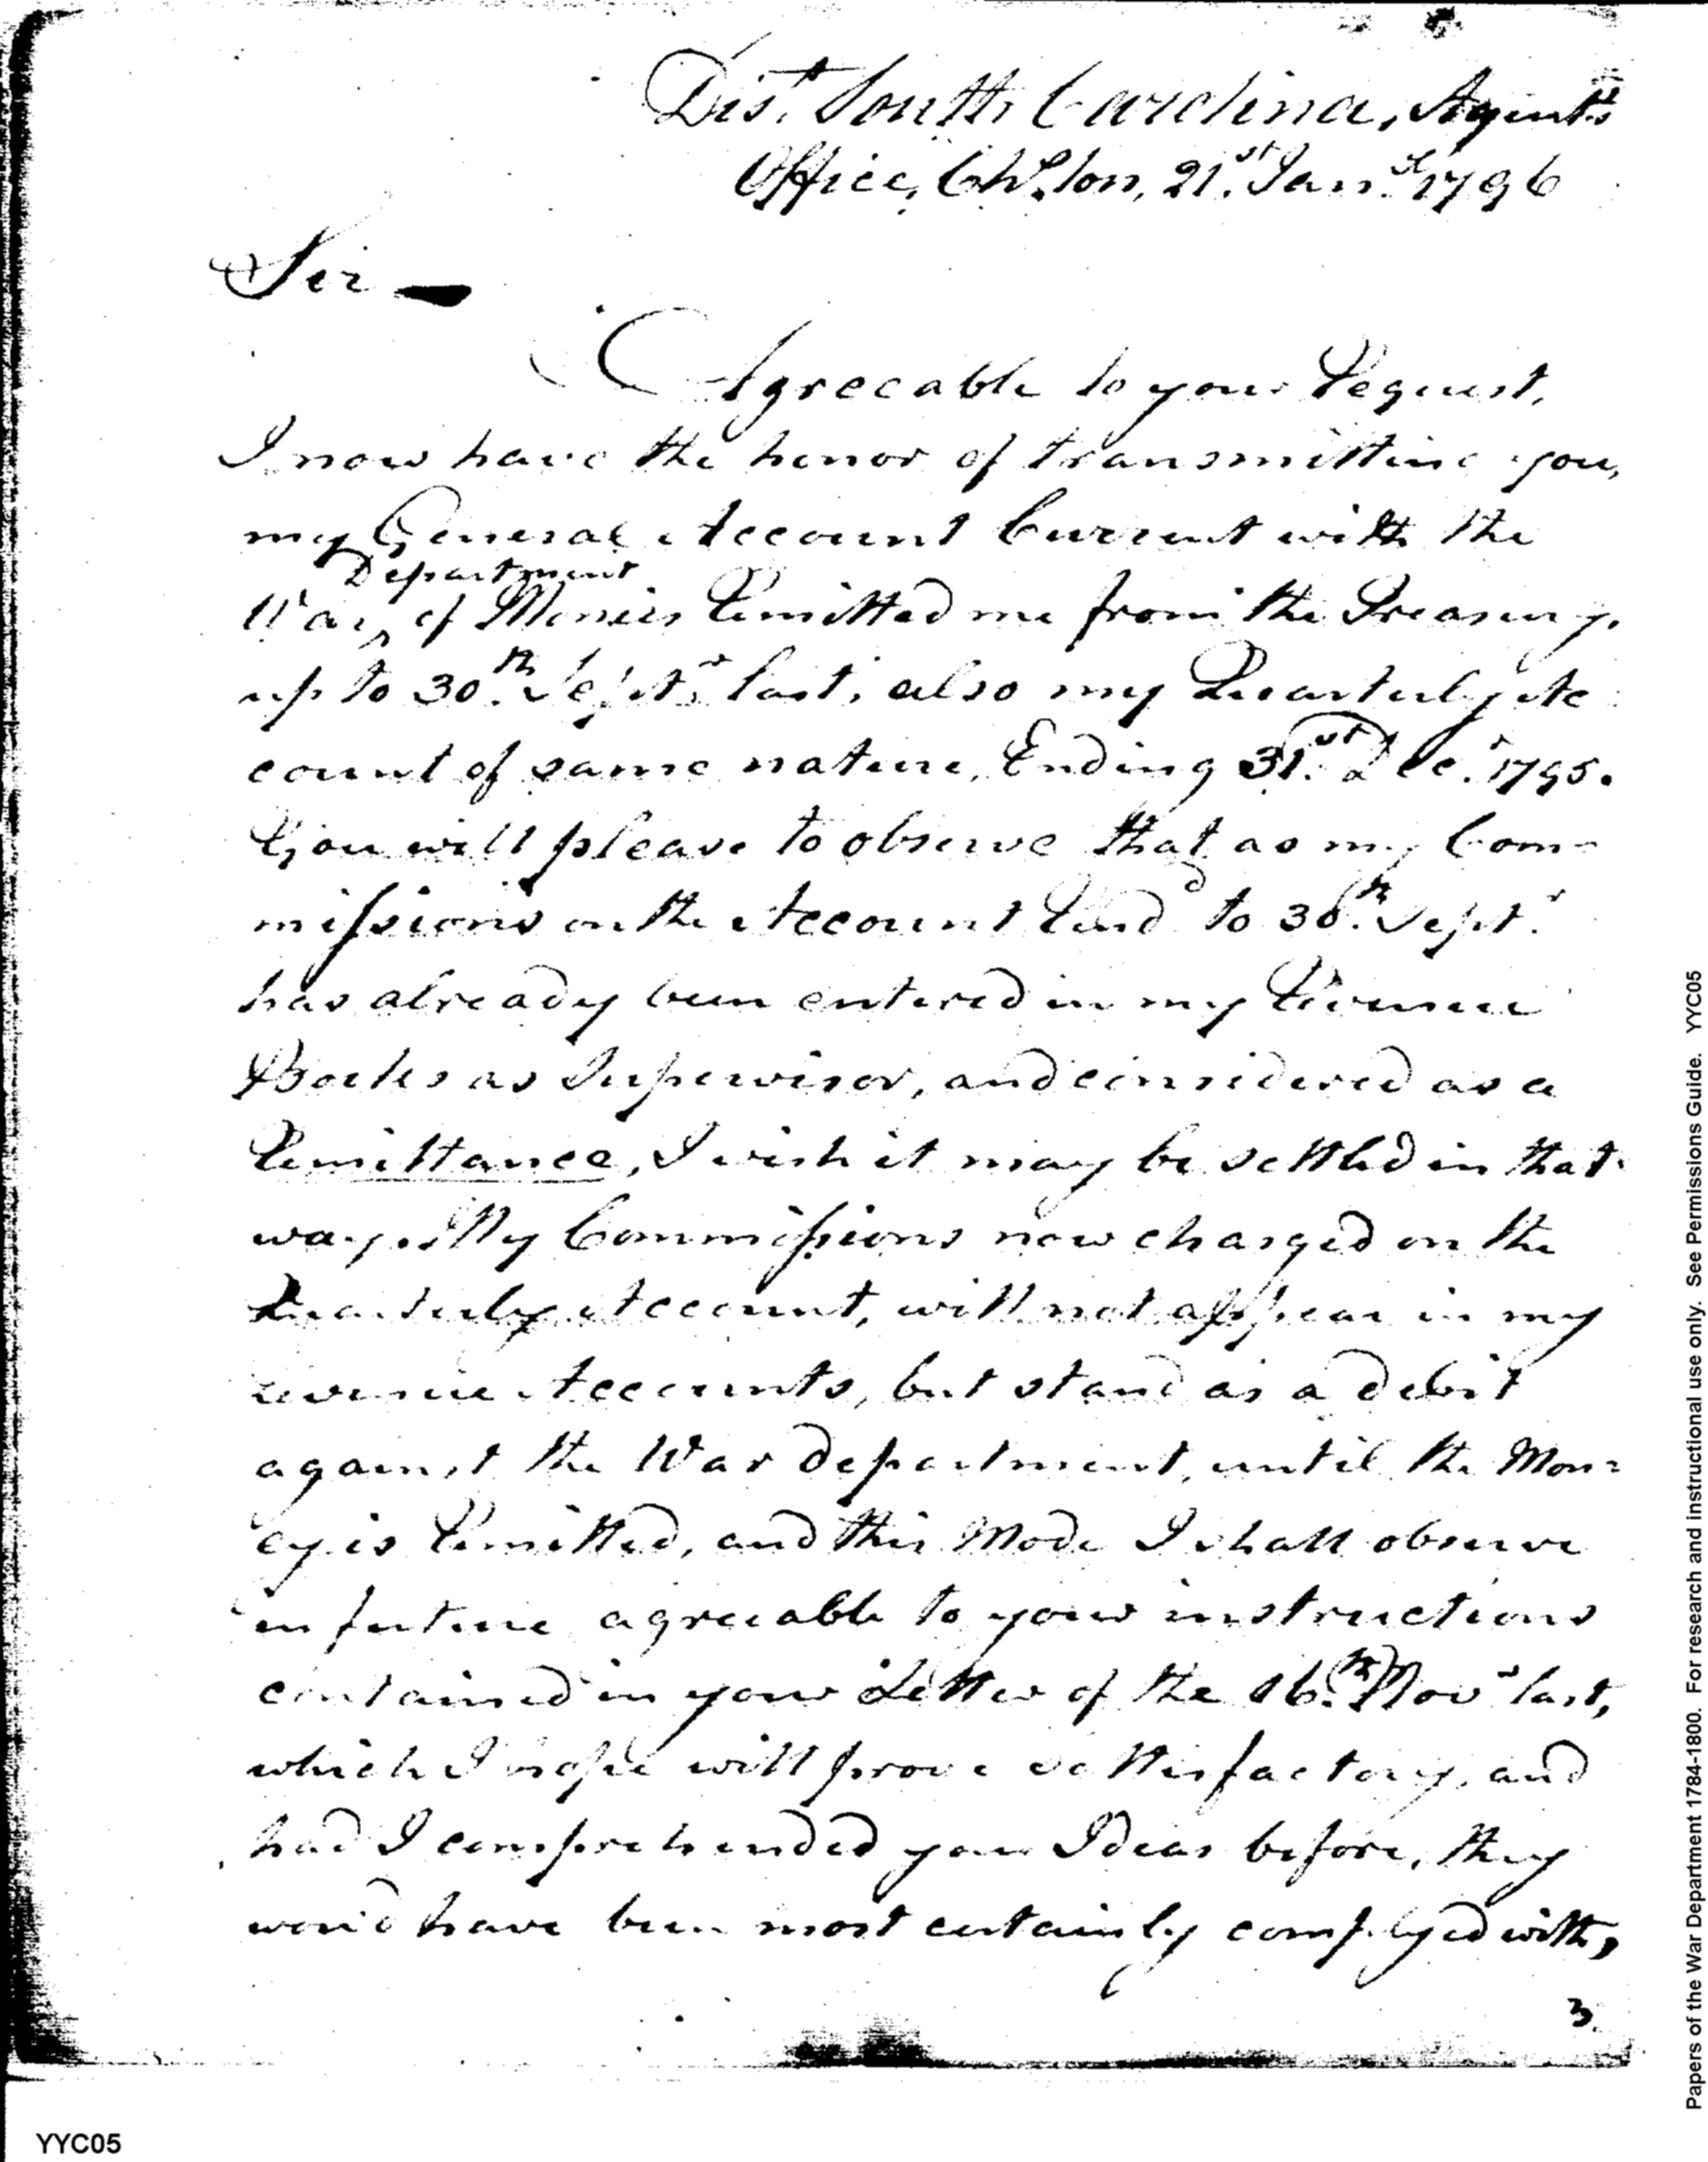 Dist. South Carolina, Agents
Office, Chs.ton, 21st. Jany. 1796
Sir —
Agreeable to your Request,
I now have the honor of transmitting you,
my General Account Current with the
Department
War, of Monies Remitted me from the Treasury,
up to 30.th Septr. last, also my Quarterly Ac
count of same nature, Ending 31.st Decr. 1795.
You will please to observe that as my Com-
missions on the Account Rend'd to 30.th Septr.
has already been entered in my Revenue
Books as Supervisor, and considered as a
Remittance, I wish it may be settled in that
way. My Commissions now charged on the
Quarterly Account, will not appear in my
revenue Accounts, but stand as a debit
against the War department, until the Mon-
ey is Remitted, and this Mode I shall observe
in future agreeable to your instructions
contained in your Letter of the 16.th Novr last,
which I hope will prove sattisfactory, and
had I comprehended your Ideas before, they
wou'd have been most certainly complyed with,
3
YYC05
Papers of the War Department 1784-1800. For research and instructional use only. See Permissions Guide. YYC05